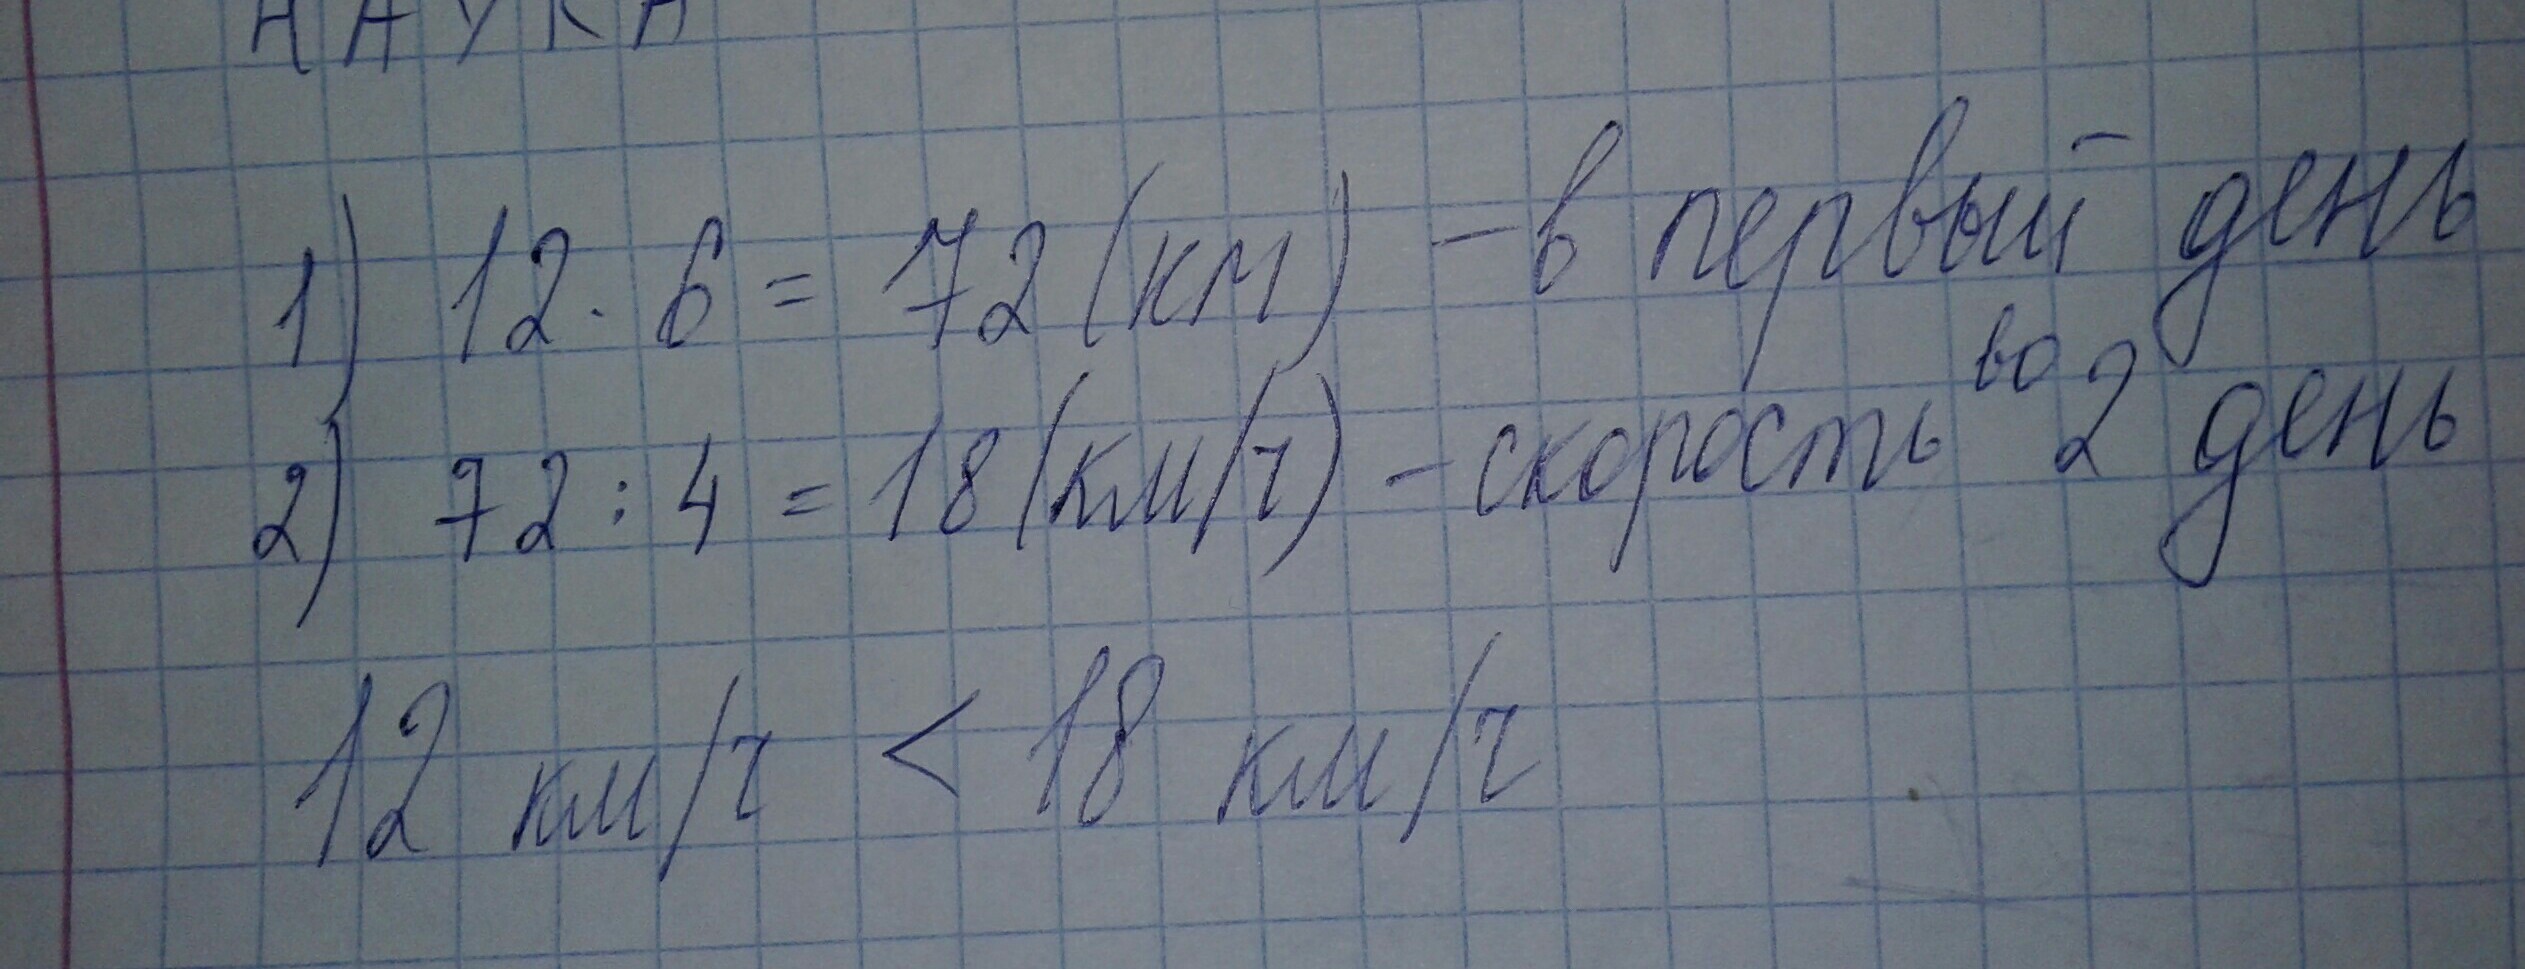 НАУКА
1) 12 · 6 = 72 (км) - в первый день
2) 72 : 4 = 18 (км/ч) - скорость во 2 день
12 км/ч < 18 км/ч